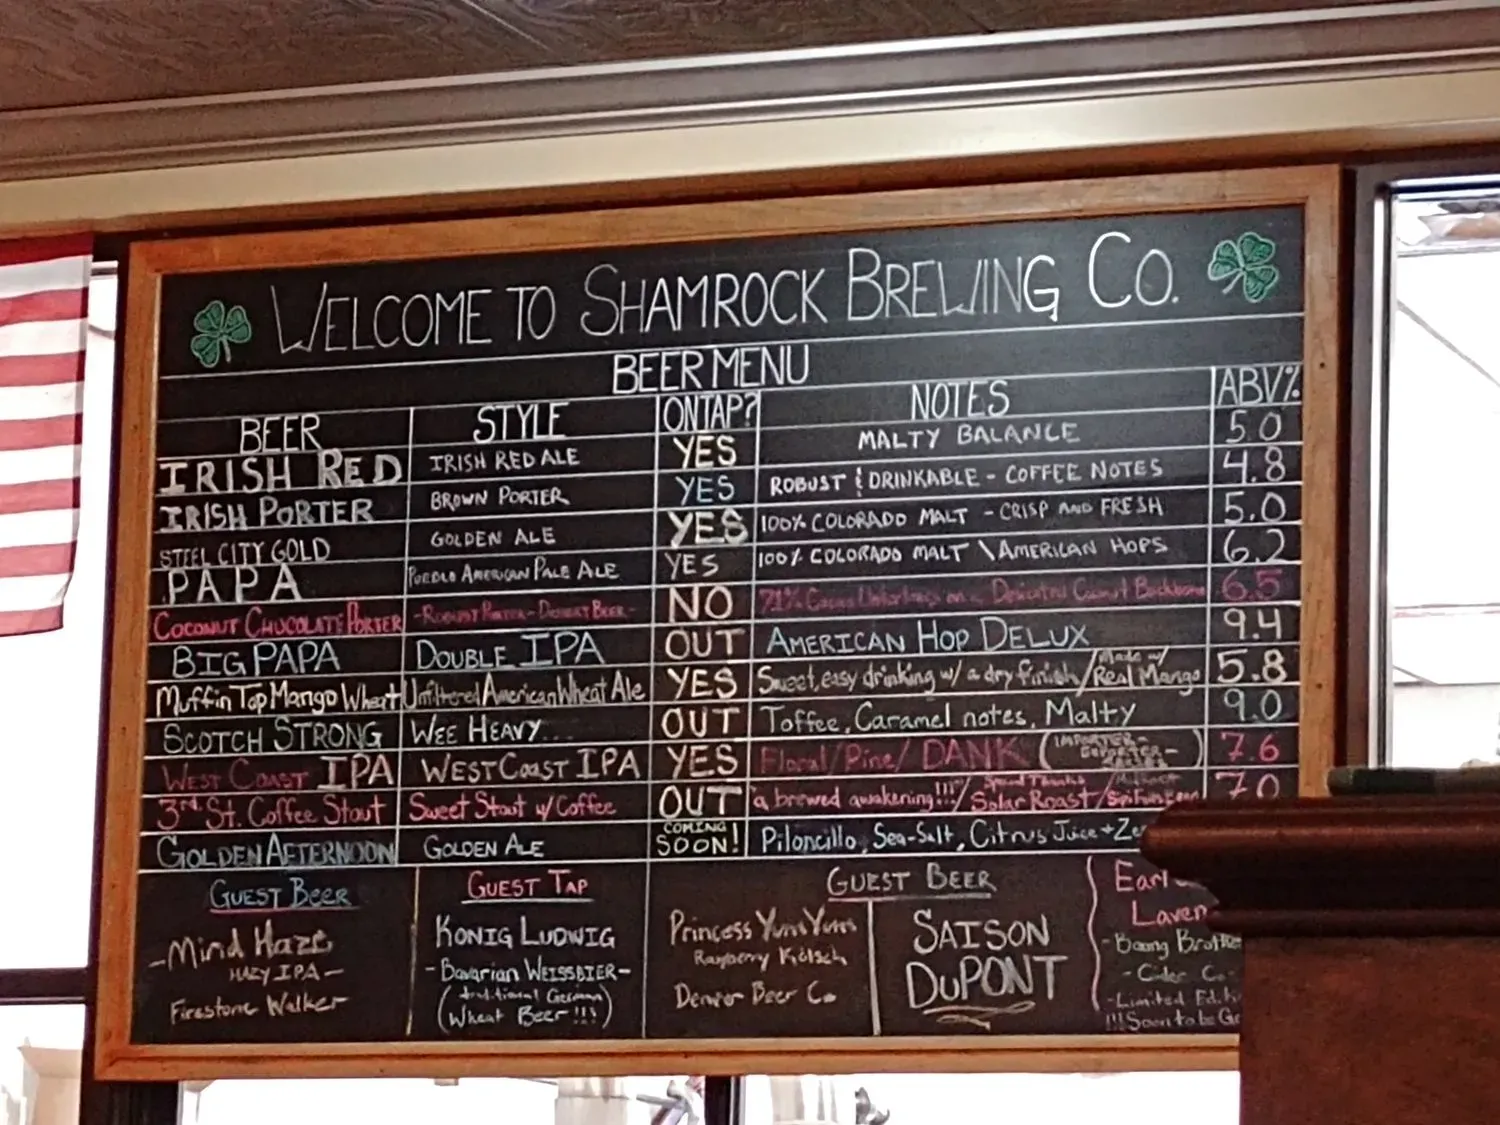 WELCOME TO SHAMROCK BREWING CO.
BEER MENU
BEER STYLE ON TAP? NOTES ABV%
IRISH RED IRISH RED ALE YES MALTY BALANCE 5.0
IRISH PORTER BROWN PORTER YES ROBUST & DRINKABLE - COFFEE NOTES 4.8
STEEL CITY GOLD GOLDEN ALE YES 100% COLORADO MALT - CRISP AND FRESH 5.0
PAPA PUEBLO AMERICAN PALE ALE YES 100% COLORADO MALT \ AMERICAN HOPS 6.2
COCONUT CHUCOLATE PORTER -ROBUST PORTER - DESSERT BEER- NO 71% Cacao on a Delicated Coconut Backbone 6.5
BIG PAPA DOUBLE IPA OUT AMERICAN HOP DELUX 9.4
Muffin Top Mango Wheat Unfiltered American Wheat Ale YES Sweet, easy drinking w/ a dry finish / Made w/ Real Mango 5.8
SCOTCH STRONG WEE HEAVY... OUT Toffee, Caramel notes, Malty 9.0
WEST COAST IPA WEST COAST IPA YES Floral / Pine / DANK 7.6
3rd. St. Coffee Stout Sweet Stout w/ Coffee OUT "a brewed awakening!!!"/ Special Thanks Solar Roast / 7.0
GOLDEN AFTERNOON GOLDEN ALE COMING SOON! Piloncillo, Sea-Salt, Citrus Juice +
GUEST BEER
-Mind Haze
HAZY IPA-
Firestone Walker
GUEST TAP
KONIG LUDWIG
-Bavarian WEISSBIER-
(traditional German
Wheat Beer!!!)
GUEST BEER
Princess Yum Yum
Raspberry Kölsch
Denver Beer Co
SAISON
DUPONT
Earl
Laven
-Boxing Brothe
-Cider Co-
-Limited Ed
!!!Soon to be Go